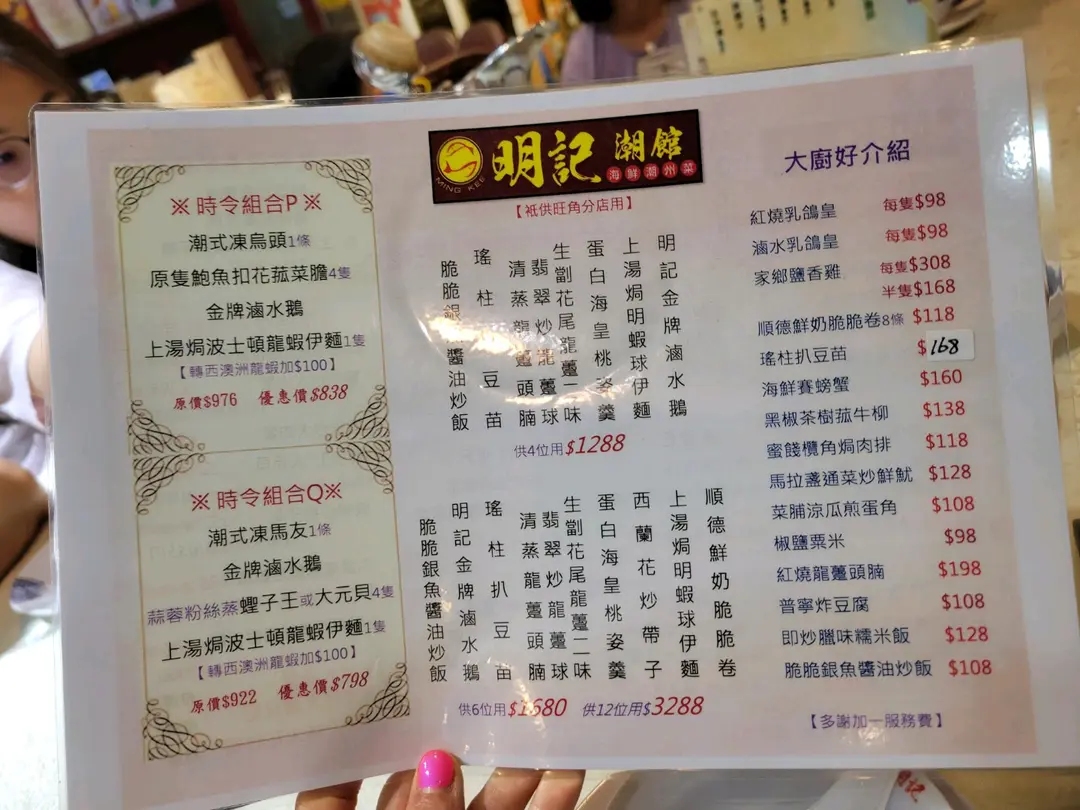 ※時令組合P※
潮式凍烏頭1條
原隻鮑魚扣花菇菜膽4隻
金牌滷水鵝
上湯焗波士頓龍蝦伊麵1隻
【轉西澳洲龍蝦加$100】
原價$976 優惠價$838
※時令組合Q※
潮式凍馬友1條
金牌滷水鵝
蒜蓉粉絲蒸蟶子王或大元貝4隻
上湯焗波士頓龍蝦伊麵1隻
【轉西澳洲龍蝦加$100】
原價$922 優惠價$798
MING KEE
明記潮館
海鮮潮州菜
【衹供旺角分店用】
明記金牌滷水鵝
上湯焗明蝦球伊麵
蛋白海皇桃姿羹
生劏花尾龍躉二味
翡翠炒龍躉球
清蒸龍躉頭腩
瑤柱豆苗
脆脆銀魚醬油炒飯
供4位用$1288
順德鮮奶脆脆卷
上湯焗明蝦球伊麵
西蘭花炒帶子
蛋白海皇桃姿羹
生劏花尾龍躉二味
翡翠炒龍躉球
清蒸龍躉頭腩
瑤柱扒豆苗
明記金牌滷水鵝
脆脆銀魚醬油炒飯
供6位用$1680 供12位用$3288
大廚好介紹
紅燒乳鴿皇 每隻$98
滷水乳鴿皇 每隻$98
家鄉鹽香雞 每隻$308
半隻$168
順德鮮奶脆脆卷8條 $118
瑤柱扒豆苗 $168
海鮮賽螃蟹 $160
黑椒茶樹菇牛柳 $138
蜜餞欖角焗肉排 $118
馬拉盞通菜炒鮮魷 $128
菜脯涼瓜煎蛋角 $108
椒鹽粟米 $98
紅燒龍躉頭腩 $198
普寧炸豆腐 $108
即炒臘味糯米飯 $128
脆脆銀魚醬油炒飯 $108
【多謝加一服務費】